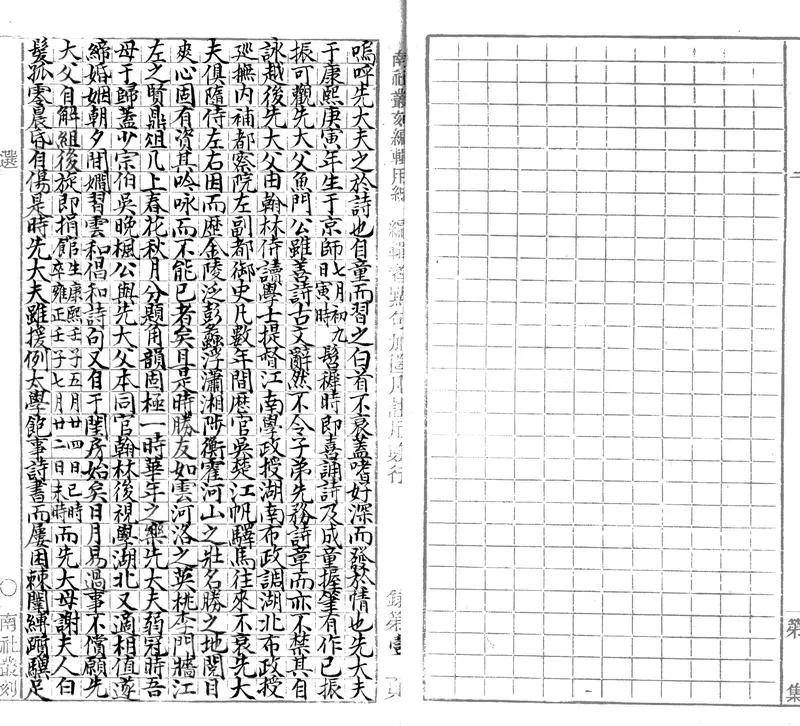 第 集
南社叢刻編輯用紙
編輯者點句加圈 錄第壹 頁
嗚呼先大夫之於詩也自童而習之白首不衰蓋嗜好深而發於情也先大夫
于康熙庚寅年生于京師七月初九日寅時髫穉時即喜誦詩及成童握筆有作已振
振可觀先大父魚門公雖善詩古文辭然不令子弟先務詩章而亦不禁其自
詠越後先大父由翰林侍讀學士提督江南學政授湖南布政調湖北布政授
巡撫內補都察院左副都御史凡數年間歷官吳楚江帆驛馬往來不衰先大
夫俱隨侍左右因而歷金陵泛彭蠡浮瀟湘陟衡霍河山之壯名勝之地閱目
爽心固有資其吟咏而不能已者矣且是時勝友如雲河洛之英桃李門牆江
左之賢鼎俎几上春花秋月分題角韻固極一時華年之樂先大夫弱冠時吾
母于歸蓋少宗伯吳晚楓公與先大父本同官翰林後視學湖北又適相值遂
締婚姻朝夕閒嫻習雲和倡和詩句又自于閨房始矣日月易過事不償願先
大父自解組後旋即捐館生康熙壬子五月廿四日巳時卒雍正壬子七月廿二日未時而先大母謝夫人白
髮孤零晨昏自傷是時先大夫雖援例太學飽事詩書而屢困棘闈縛蹄驥足
選 〇 南社叢刻